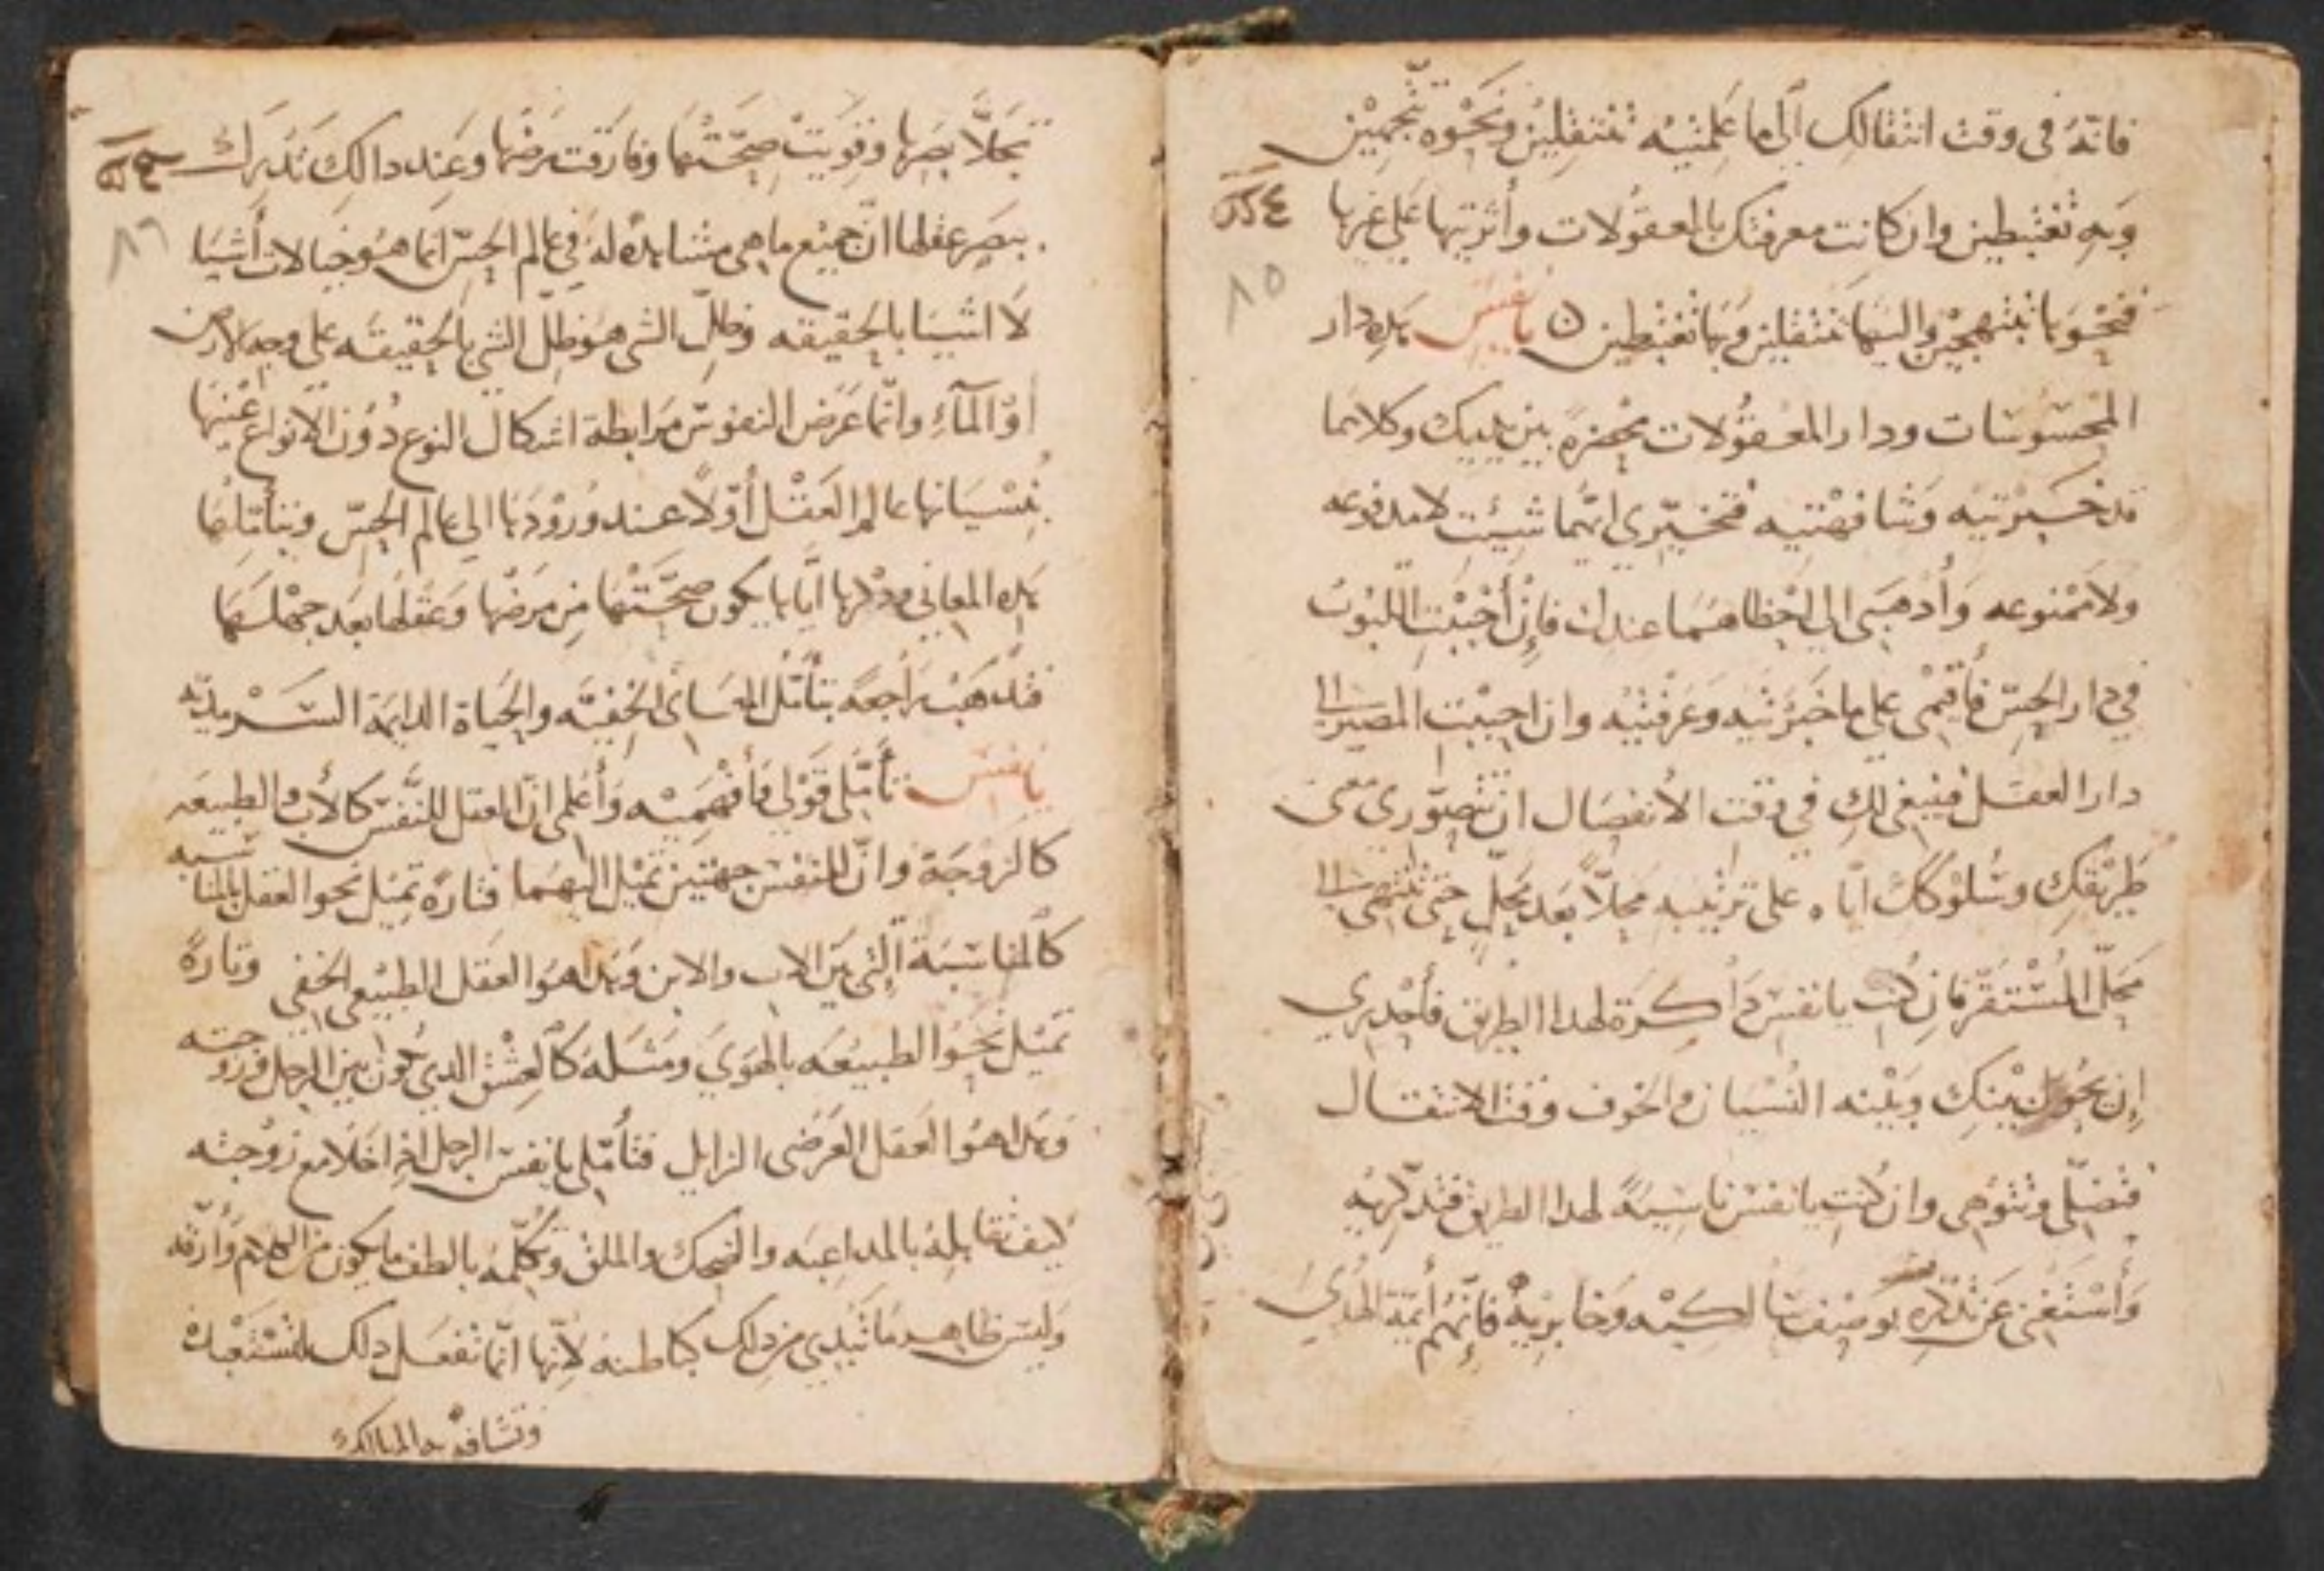 فانّهُ فى وقت انتقالك الى ما عَلمتيْه تنتقلين ونَحْوه تتّجهيْن
وَبهِ تغْتبطين وان كانت معرفتك بالمعقوُلات وأثرتيها على غيرها
٨٥
فنحْوَها تبْتهجيْن واليها تنتقلين وبها تغْتبطين ن يا نفس هذه دار
المحْسوُسات ودار المعْقوُلات بحضرةٍ بين يديك وكلاهما
قد خبرْتيه وَشافهْتيه فتخيّري ايّهما شيئتِ لا مدفوعه
ولا ممْنوعه وَأدهبَى الى احْظاهمَا عندك فاِنْ أحْببْتِ اللبوُث
في دار الحِسّ فأقيْمى على ما خبَرْتيه وعَرفتيْه وان احببْتِ المصير الى
دار العقل فينبغى لكِ في وقت الأنفصَال ان تتصوّري معنى
طريقكِ وسُلوْككِ اياه على ترتيبه محلاًّ بَعد محلٍّ حتى تنتهى الى
محلّ المُسْتقرّ فان كنتِ يا نفس دَاكرَة لهدا الطريق فأحْدري
إن يحُول بيْنكِ وبَيْنه النّسْيان والخوف وقت الانتقال
فتضلّى وتتوْهى وان كنتِ يا نفس ناسيَةً لهدا الطريق فتدكّريْه
وَأسْتعْنى عَن تدكّره بوَصْف سَالكيْه وخابريْهْ فاِنّهمْ أئمّة الهُدىَ
تجلاَّ بصَرها وقويَتْ صِحّتهْا وفارَقت مَرضْها وعَند دالكِ تدْرك
٨٦
ببصَر عقلها انّ جميْع ما هى مشاهدة لهُ في عالم الحِسّ انما هوُ خيالات أشيَا
لاَ اشيَا بالحقيقه وظلّ الشى هوَ ظِلّ الشي بالحقيْقه على وجه الأرض
اوْ المآءِ وانّما عَرَض النفوس مَرَابطة اشكال النوع دُوْن الأنواع عَيْنها
بُنسْيَانها عالم العَقْل أوّلاً عند وُروْدها الي عالم الحِسّ وبتأمّلها
هذه المعاني ودْكرها ايّاها يكون صِحّتهْا مِن مَرضْها وَعَقلها بَعد جهْلهَا
فتدهَبْ رَاجعةً بتأمّل المعَانىَ الخفيّه والحيَاة الدايمة السَرْمديّه
يا نفس تأمّلى قوْلى فأفهَميْه وَأعْلمى انّ العقل للنّفس كالأب والطبيعَه
كالزوجَة وانّ للنفسْ جهتين تميْل اليهمَا فتارةً تميْل نحو العقل بالمناسَبه
كالمناسَبَة الّتي بيَن الاب والابن وَهدا هوَ العقل الطبيْعى الخفى وتارةً
تميْل نحْوَ الطبيعَه بالهَوَي ومَثَله كالعِشْق الدي يكون بين الرجل وزوجته
وهدا هوَ العقل العَرَضى الزايل فتأمّلى يا نفس الرجل اذا خلاَ مع زوْجته
كيف تقابلهُ بالمداعبَه والضحك والملق وتكلّمهُ بالطف ما يكون من الكلام وَأرقّه
وَليسَ ظاهر ما تبْدي من دلك كباطنه لأنّها انّما تفعَل دلك لتسْتعْبدهْ